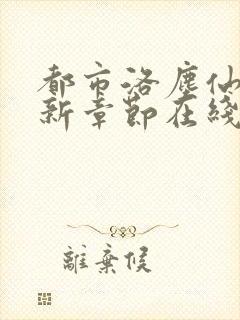 都市洛塵仙
新章節在綫
離棄候